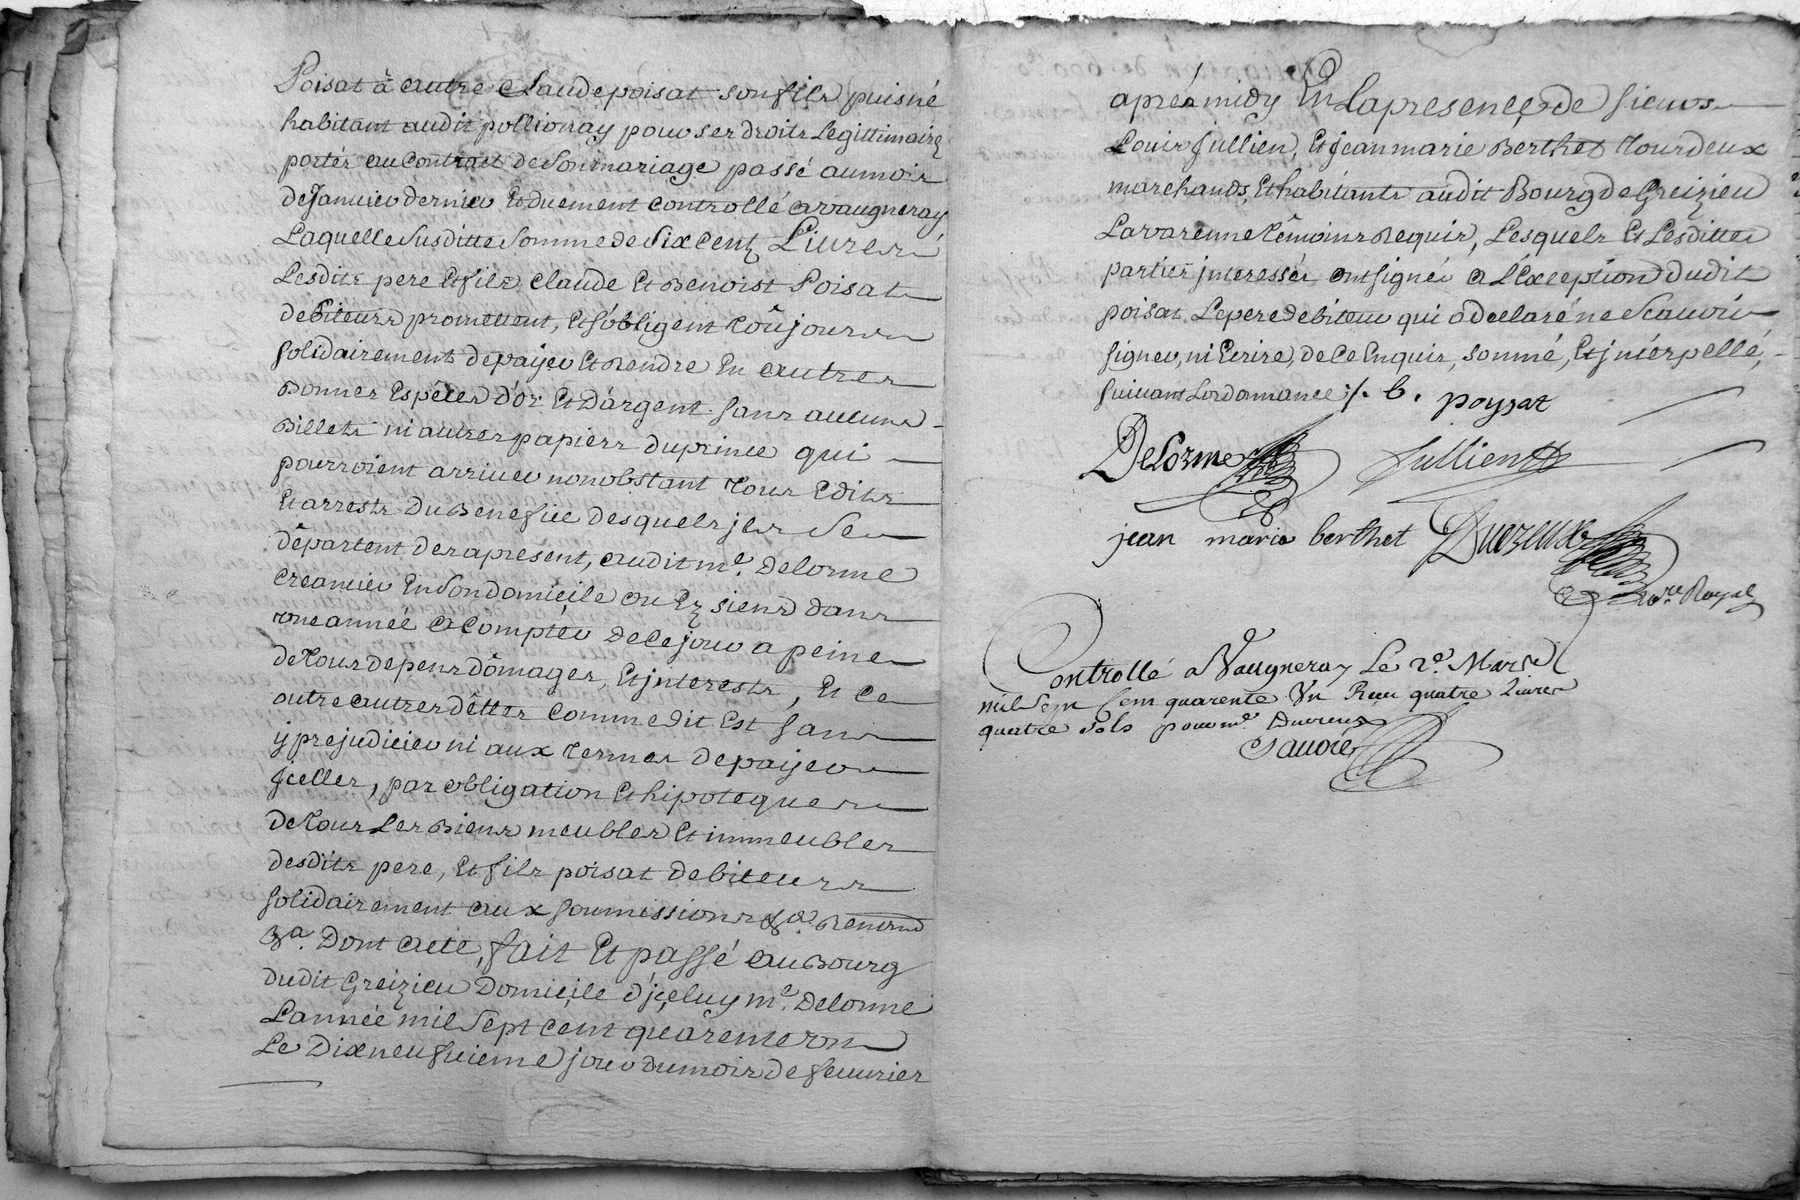 Poisat à autre Claude poisat son fils puisné
habitant audit pollionay pour ses droits Legittimaires
portés au Contract de son mariage passé au mois
de Janvier dernier Et duement Controllé a vaugneray
Laquelle Susditte Somme de Six Cent Livres
Lesdits pere Et fils Claude Et Benoist Poisat
debiteurs promettent, Et s'obligent toûjours
solidairement de payer Et Rendre En autres
Bonnes Espéces d'or Et d'argent sans aucuns
Billets ni autres papiers du prince qui
pourroient arriver nonobstant tous Edits
Et arrests du Benefice desquels jls Se
départent des apresent, audit me. Delorme
Creancier En Son domicile ou Ez siens dans
une année à Compter de Ce jour a peine
de tous depens dômages, Et jnterests, Et Ce
outre autres déttes Comme dit Est sans
y prejudicier ni aux termes de payer
jcelles, par obligation Et hipoteques
de tous Les Biens meubles Et immeubles
desdits pere, Et fils poisat debiteurs
solidairement aux soumissions &a. Renond
&a. Dont acte, fait Et passé au Bourg
dudit Greizieu Domicile d'jceluy me. Delorme
L'année mil Sept Cent quarente un
Le Dixneufuieme jour du mois de feuvrier
apres midy En la presence de sieurs
Louis Jullien, Et Jean marie Berthet tous deux
marchands, Et habitants audit Bourg de Greizieu
Lavarenne témoins Requis, Lesquels Et Lesdittes
parties jnteressées ont signé a L'Exception dudit
poisat Le pere debiteur qui a declaré ne Scavoir
signer, ni Ecrire, de Ce Enquis, sommé, Et jnterpellé,
suivant Lordonnance ./. b. poysat
Delorme Jullien
jean marie berthet Duezeux
nore. Royal
Controllé a Vaugneray Le 2e. Mars
mil Sept Cent quarente Un Receu quatre Livres
quatre sols pour me Duereux